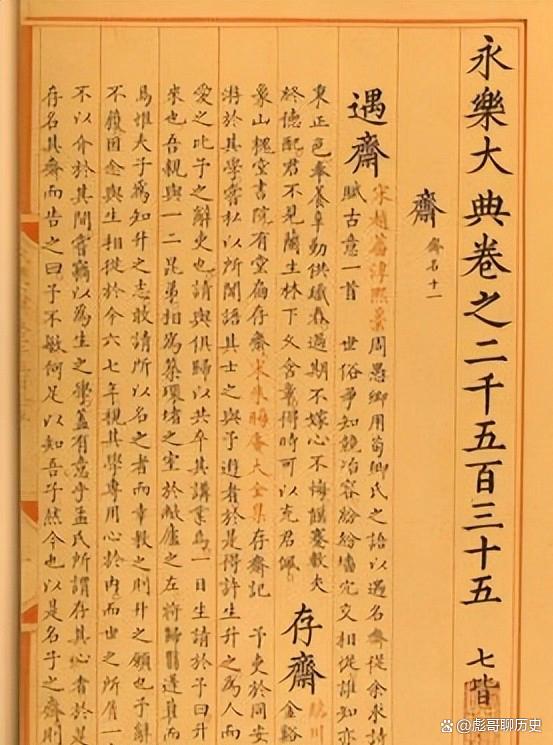 永樂大典卷之二千五百三十五 七皆
齋 齋名十一
遇齋 宋趙蕃淳熙稾 周愚卿用荀卿氏之語以遇名齋從余求詩
賦古意一首 世俗爭知競冶容紛紛墻穴交相從誰知亦
秉正色奉養辛勤供織舂過期不嫁心不悔
終德配君不見蘭生林下文含章得時可以充君佩 存齋 臨川
金谿
象山槐堂書院有堂扁存齋宋朱晦庵大全集存齋記 予吏於同安
游於其學嘗私以所聞語其士之與予遊者於是得許生升之為人而
愛之比予之辭吏也請與俱歸以共卒其講業焉一日生請於予曰升
來也吾親與一二昆弟相為築環堵之室於敝廬之左將歸翳蓬藋而
焉惟夫子為知升之志敢請所以名之者而幸教之則升之願也予辭
不獲因念與生相從於今六七年視其學專用心於內而世之所有一
不以介於其間嘗竊以為生之學蓋有意乎孟氏所謂存其心者於是
存名其齋而告之曰予不敏何足以知吾子然今也以是名子之齋則
@彪哥聊历史